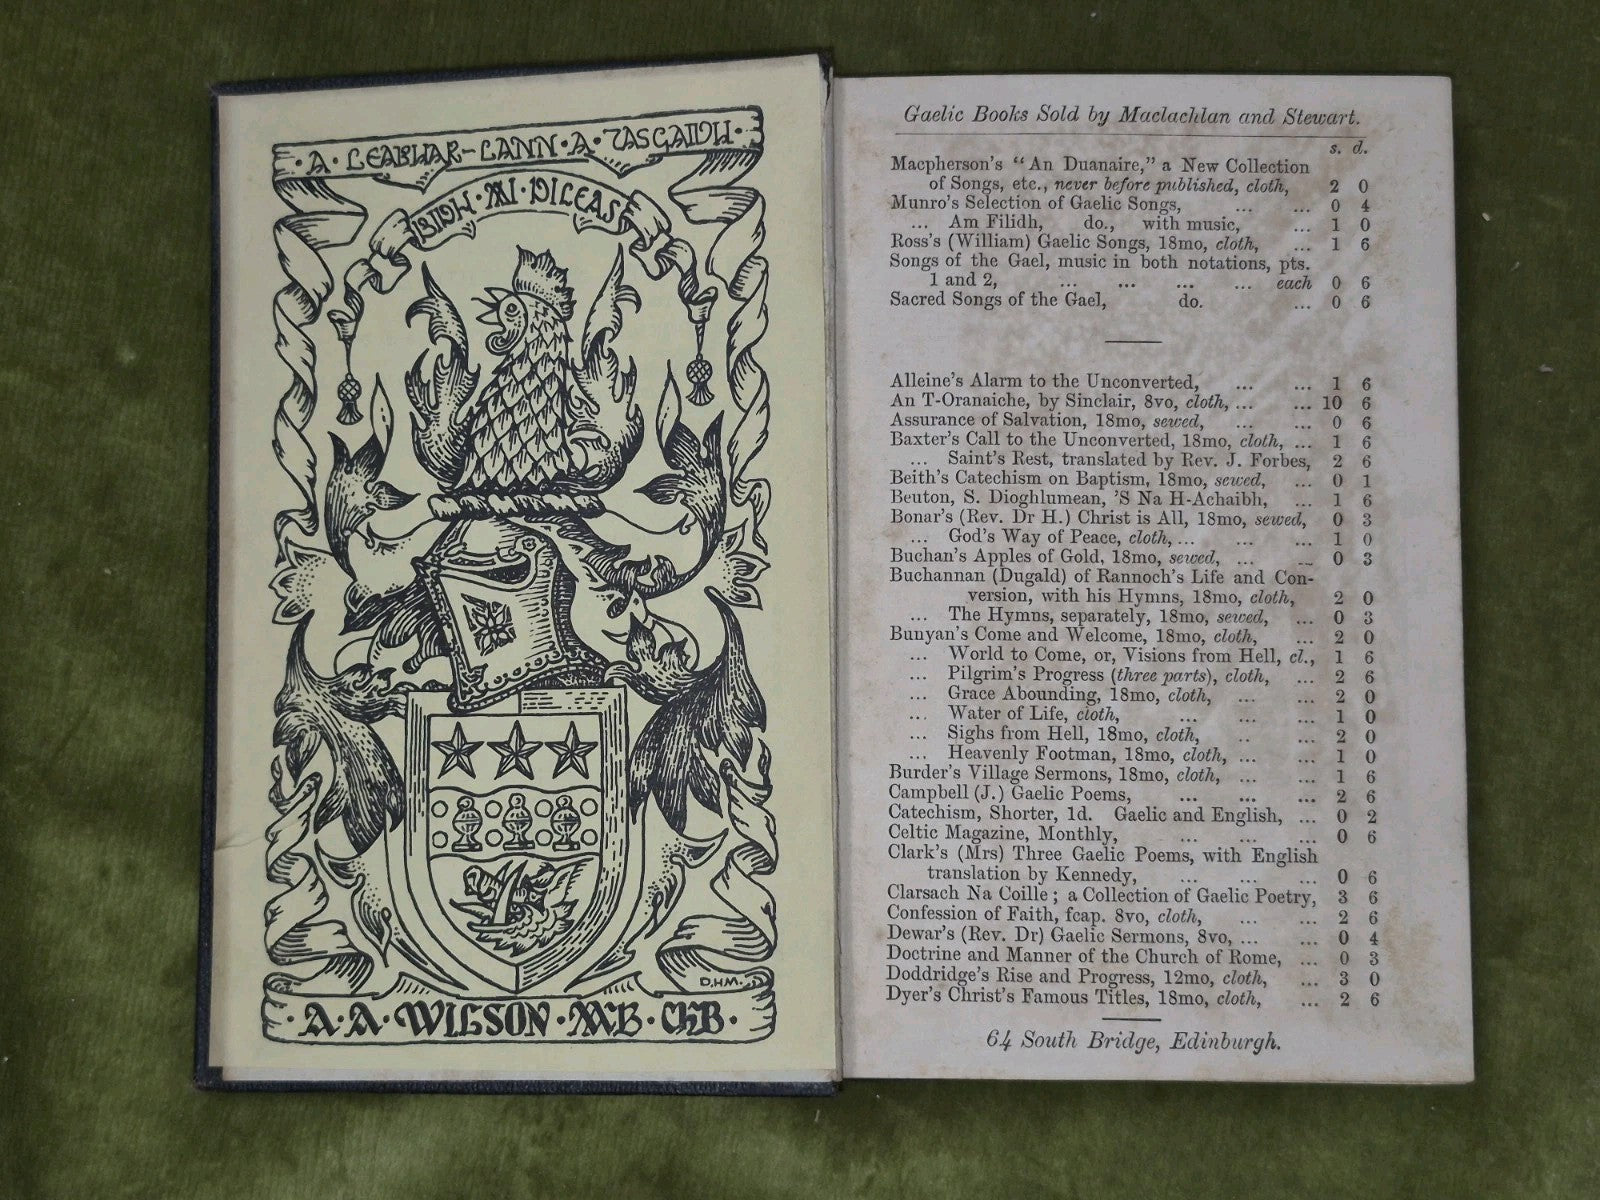 ·A·LEABHAR-LANN·A·TASGAIDH·
BIDH·MI·DILEAS
D.HM.
·A·A·WILSON·MB·CHB·
Gaelic Books Sold by Maclachlan and Stewart.
s. d.
Macpherson's "An Duanaire," a New Collection
of Songs, etc., never before published, cloth, 2 0
Munro's Selection of Gaelic Songs, ... ... 0 4
... Am Filidh, do., with music, ... 1 0
Ross's (William) Gaelic Songs, 18mo, cloth, ... 1 6
Songs of the Gael, music in both notations, pts.
1 and 2, ... ... ... ... each 0 6
Sacred Songs of the Gael, do. ... 0 6
Alleine's Alarm to the Unconverted, ... ... 1 6
An T-Oranaiche, by Sinclair, 8vo, cloth, ... ... 10 6
Assurance of Salvation, 18mo, sewed, ... ... 0 6
Baxter's Call to the Unconverted, 18mo, cloth, ... 1 6
... Saint's Rest, translated by Rev. J. Forbes, 2 6
Beith's Catechism on Baptism, 18mo, sewed, ... 0 1
Beuton, S. Dioghlumean, 'S Na H-Achaibh, ... 1 6
Bonar's (Rev. Dr H.) Christ is All, 18mo, sewed, 0 3
... God's Way of Peace, cloth, ... ... ... 1 0
Buchan's Apples of Gold, 18mo, sewed, ... ... 0 3
Buchannan (Dugald) of Rannoch's Life and Con-
version, with his Hymns, 18mo, cloth, 2 0
... The Hymns, separately, 18mo, sewed, ... 0 3
Bunyan's Come and Welcome, 18mo, cloth, ... 2 0
... World to Come, or, Visions from Hell, cl., 1 6
... Pilgrim's Progress (three parts), cloth, ... 2 6
... Grace Abounding, 18mo, cloth, ... ... 2 0
... Water of Life, cloth, ... ... ... 1 0
... Sighs from Hell, 18mo, cloth, .. ... 2 0
... Heavenly Footman, 18mo, cloth, ... ... 1 0
Burder's Village Sermons, 18mo, cloth, ... ... 1 6
Campbell (J.) Gaelic Poems, ... ... ... 2 6
Catechism, Shorter, 1d. Gaelic and English, ... 0 2
Celtic Magazine, Monthly, ... ... ... 0 6
Clark's (Mrs) Three Gaelic Poems, with English
translation by Kennedy, ... ... ... 0 6
Clarsach Na Coille; a Collection of Gaelic Poetry, 3 6
Confession of Faith, fcap. 8vo, cloth, ... ... 2 6
Dewar's (Rev. Dr) Gaelic Sermons, 8vo, ... ... 0 4
Doctrine and Manner of the Church of Rome, ... 0 3
Doddridge's Rise and Progress, 12mo, cloth, ... 3 0
Dyer's Christ's Famous Titles, 18mo, cloth, ... 2 6
64 South Bridge, Edinburgh.